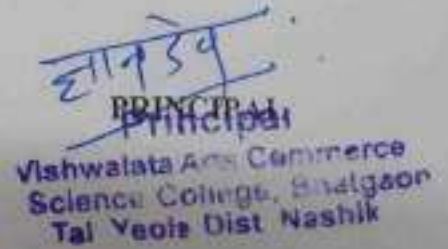 ज्ञानदेव
PRINCIPAL
Principal
Vishwalata Arts Commerce
Science College, Bhatgaon
Tal Yeola Dist Nashik